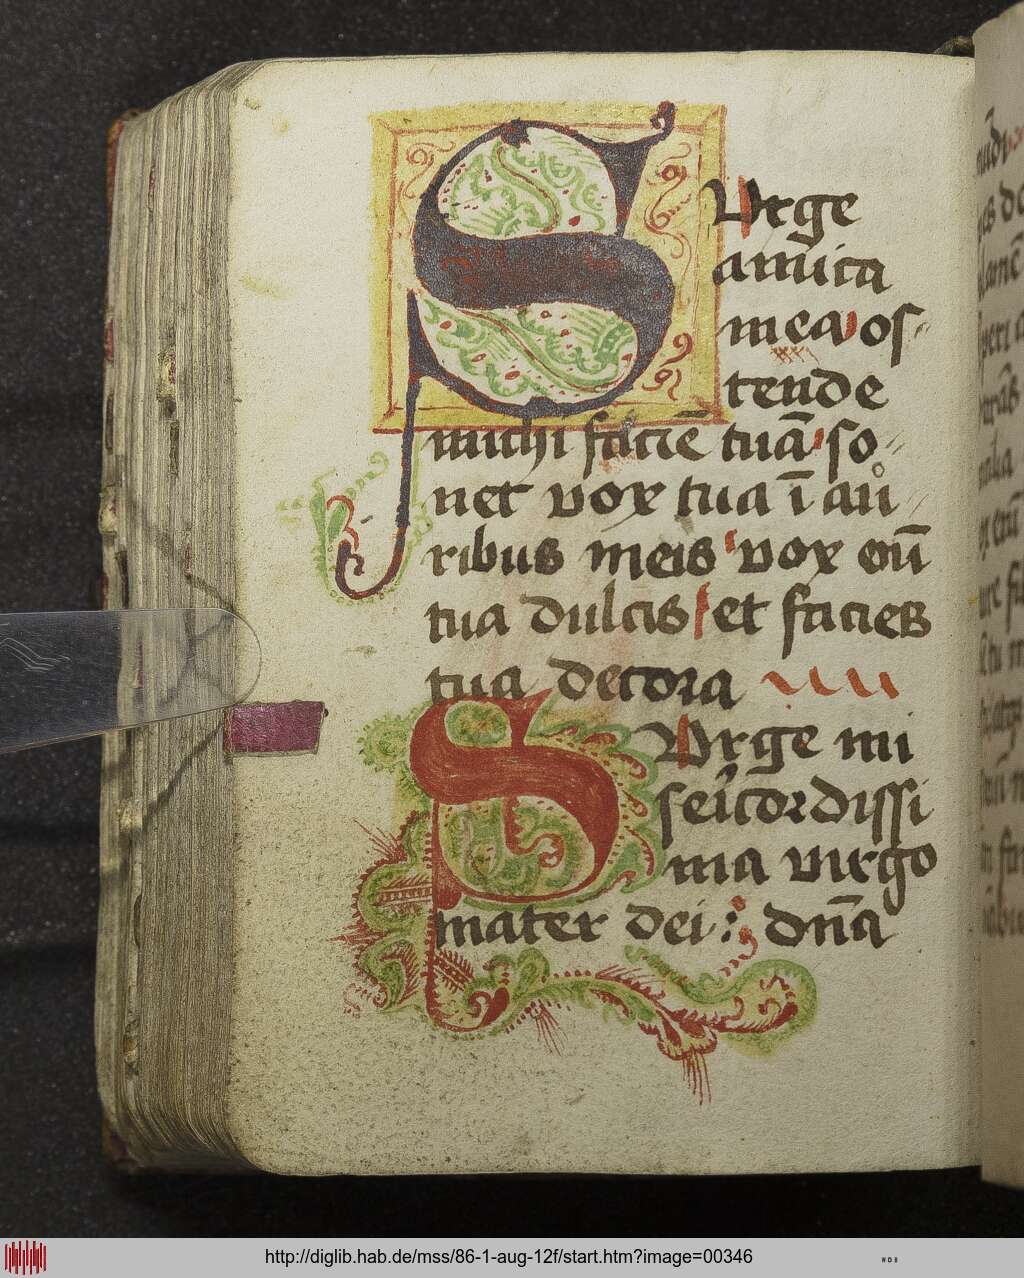 SUrge
amica
mea os-
tende
michi faciē tuā so-
net vox tua ī au-
ribus meis vox em̄
tua dulcis et facies
tua decora
SUrge mi
sericordissi
ma virgo
mater dei : dn̄a
http://diglib.hab.de/mss/86-1-aug-12f/start.htm?image=00346